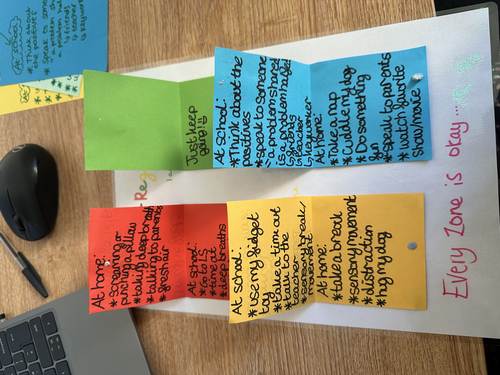 Just keep
going!
At school:
*Think about the
positives
*speak to someone
"a problem shared
is a problem halved"
*friends
*teacher
*keyworker
At home:
*Take a nap
*Cuddle my dog
*Do something
fun
*speak to parents
*watch favorite
show/movie
At home:
*screaming or
punching a pillow
*taking deep breaths
*talking to parents
*fresh air
At school:
*Go to LS
*time out
*deep breaths
At school:
*use my fidget
toy
*take a time out
*talk to the
teacher
*sensory break/
movement
At home:
*take a break
*sensory/movement
*distraction
my dog
Every Zone is okay...
At school:
*Think about
the positives
*speak to some
"a problem sha
a problem hal
*friends
*teacher
*keywor